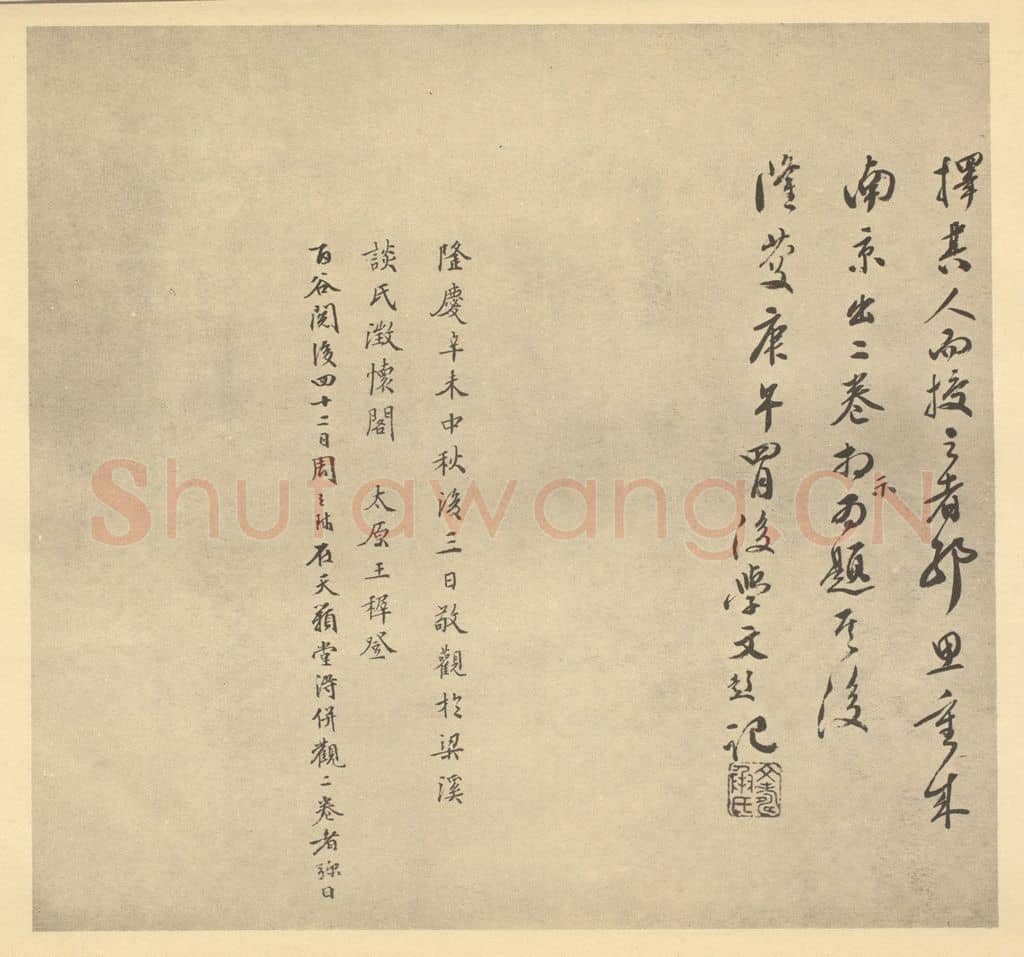 擇其人而授之者耶思重來
南京出二卷相示為題其後
隆慶庚午四月後學文彭記
隆慶辛未中秋後三日敬觀於梁溪
談氏澂懷閣 太原王穉登
百谷閱後四十二日周之 在天籟堂淂併觀二卷者弥日
文壽承氏
Shufawang.CN